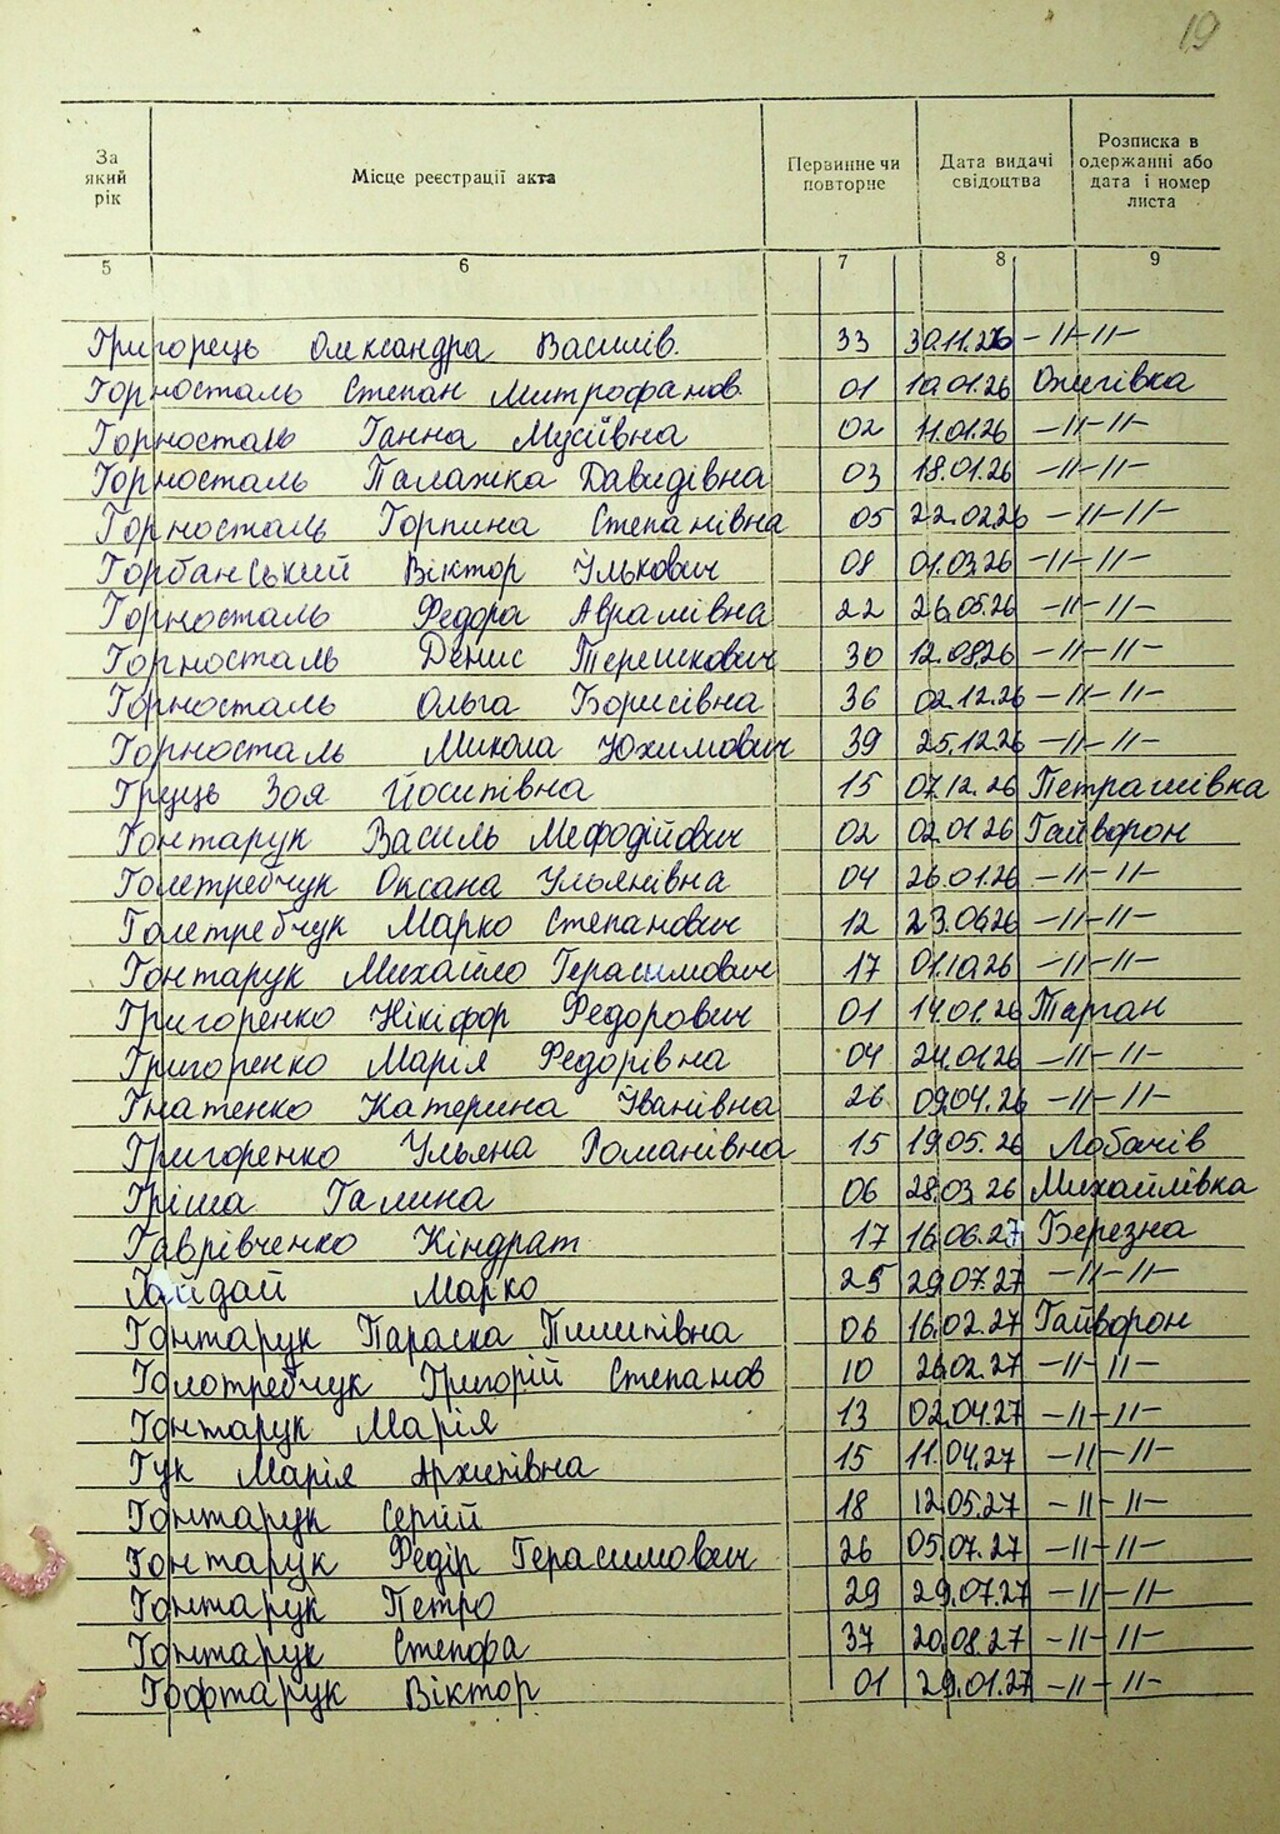 19
За який рік
Місце реєстрації акта
Первинне чи повторне
Дата видачі свідоцтва
Розписка в одержанні або дата і номер листа
5 6 7 8 9
Григорець Олександра Василів. 33 30.11.26 -//-//-
Горносталь Степан Митрофанов. 01 10.01.26 Ожигівка
Горносталь Ганна Мусіївна 02 11.01.26 -//-//-
Горносталь Палажка Давидівна 03 18.01.26 -//-//-
Горносталь Горпина Степанівна 05 22.02.26 -//-//-
Горбанський Віктор Улькович 08 01.03.26 -//-//-
Горносталь Федора Аврамівна 22 26.05.26 -//-//-
Горносталь Денис Терешкович 30 12.08.26 -//-//-
Горносталь Ольга Борисівна 36 02.12.26 -//-//-
Горносталь Микола Юхимович 39 25.12.26 -//-//-
Грець Зоя Йосипівна 15 07.12.26 Петрашівка
Гонтарук Василь Мефодійович 02 02.01.26 Гайворон
Голетребчук Оксана Ульянівна 04 26.01.26 -//-//-
Голетребчук Марко Степанович 12 23.06.26 -//-//-
Гонтарук Михайло Герасимович 17 01.10.26 -//-//-
Григоренко Нікіфор Федорович 01 14.01.26 Тарган
Григоренко Марія Федорівна 04 24.01.26 -//-//-
Гнатенко Катерина Іванівна 26 09.04.26 -//-//-
Григоренко Ульяна Романівна 15 19.05.26 Лобачів
Гріша Галина 06 28.03.26 Михайлівка
Гаврівченко Кіндрат 17 16.06.27 Березна
Гайдай Марко 25 29.07.27 -//-//-
Гонтарук Параска Пилипівна 06 16.02.27 Гайворон
Голотребчук Григорій Степанов 10 26.02.27 -//-//-
Гонтарук Марія 13 02.04.27 -//-//-
Гук Марія Архипівна 15 11.04.27 -//-//-
Гонтарук Сергій 18 12.05.27 -//-//-
Гонтарук Федір Герасимович 26 05.07.27 -//-//-
Гонтарук Петро 29 29.07.27 -//-//-
Гонтарук Степофа 37 20.08.27 -//-//-
Гофтарук Віктор 01 29.01.27 -//-//-